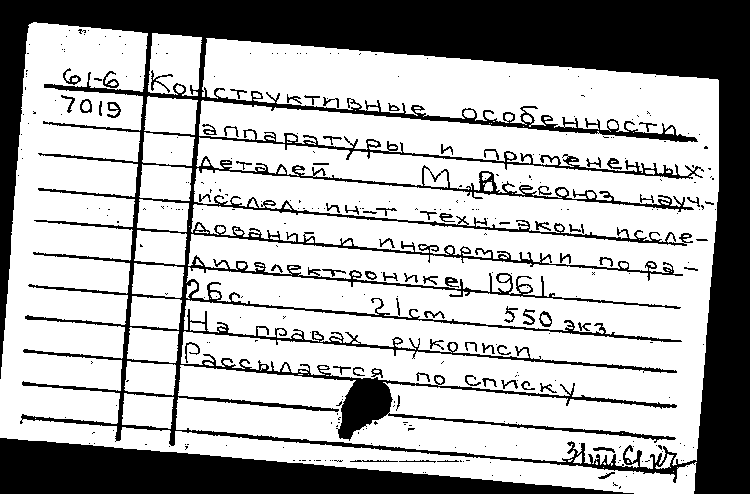 61-6 Конструктивные особенности
7019
аппаратуры и примененных
деталей. М., Всесоюз. науч.-
исслед. ин-т техн.-экон. иссле-
дований и информации по ра-
диоэлектронике, 1961.
26с. 21см. 550 экз.
На правах рукописи.
Рассылается по списку